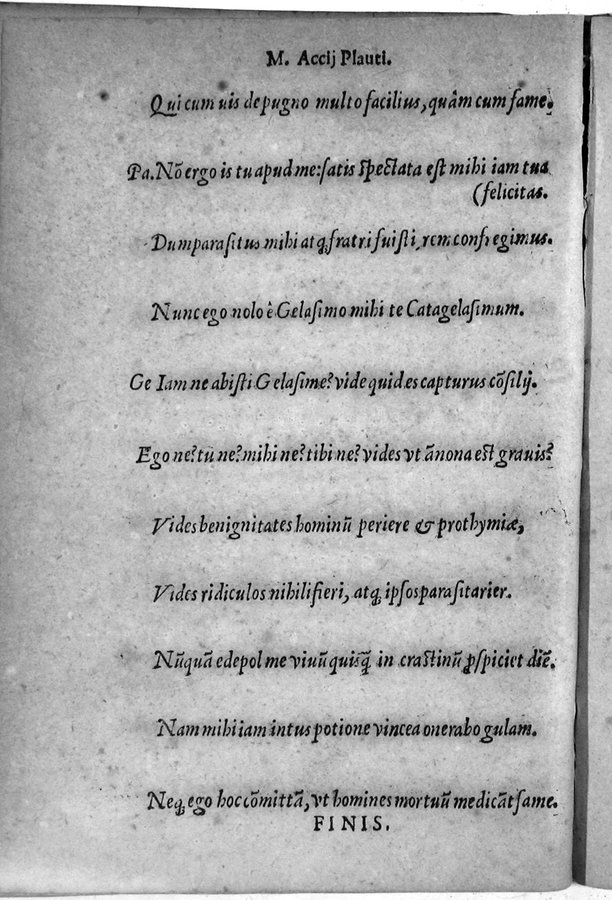 M. Accij Plauti.
Qui cum uis depugno multo facilius, quâm cum fame.
Pa. Nō ergo is tu apud me: satis spectata est mihi iam tua
(felicitas.
Dum parasitus mihi atq; fratri fuisti, rem confregimus.
Nunc ego nolo ê Gelasimo mihi te Catagelasimum.
Ge Iam ne abisti Gelasime? vide quid es capturus cōsilij.
Ego ne? tu ne? mihi ne? tibi ne? vides vt ānona est grauis?
Vides benignitates hominū periere & prothymiæ,
Vides ridiculos nihili fieri, atq; ipsos parasitarier.
Nūquā edepol me viuū quisq̄ in crastinū ꝑspiciet diē.
Nam mihi iam intus potione vincea onerabo gulam.
Neq; ego hoc cōmittā, vt homines mortuū me dicāt fame.
FINIS.